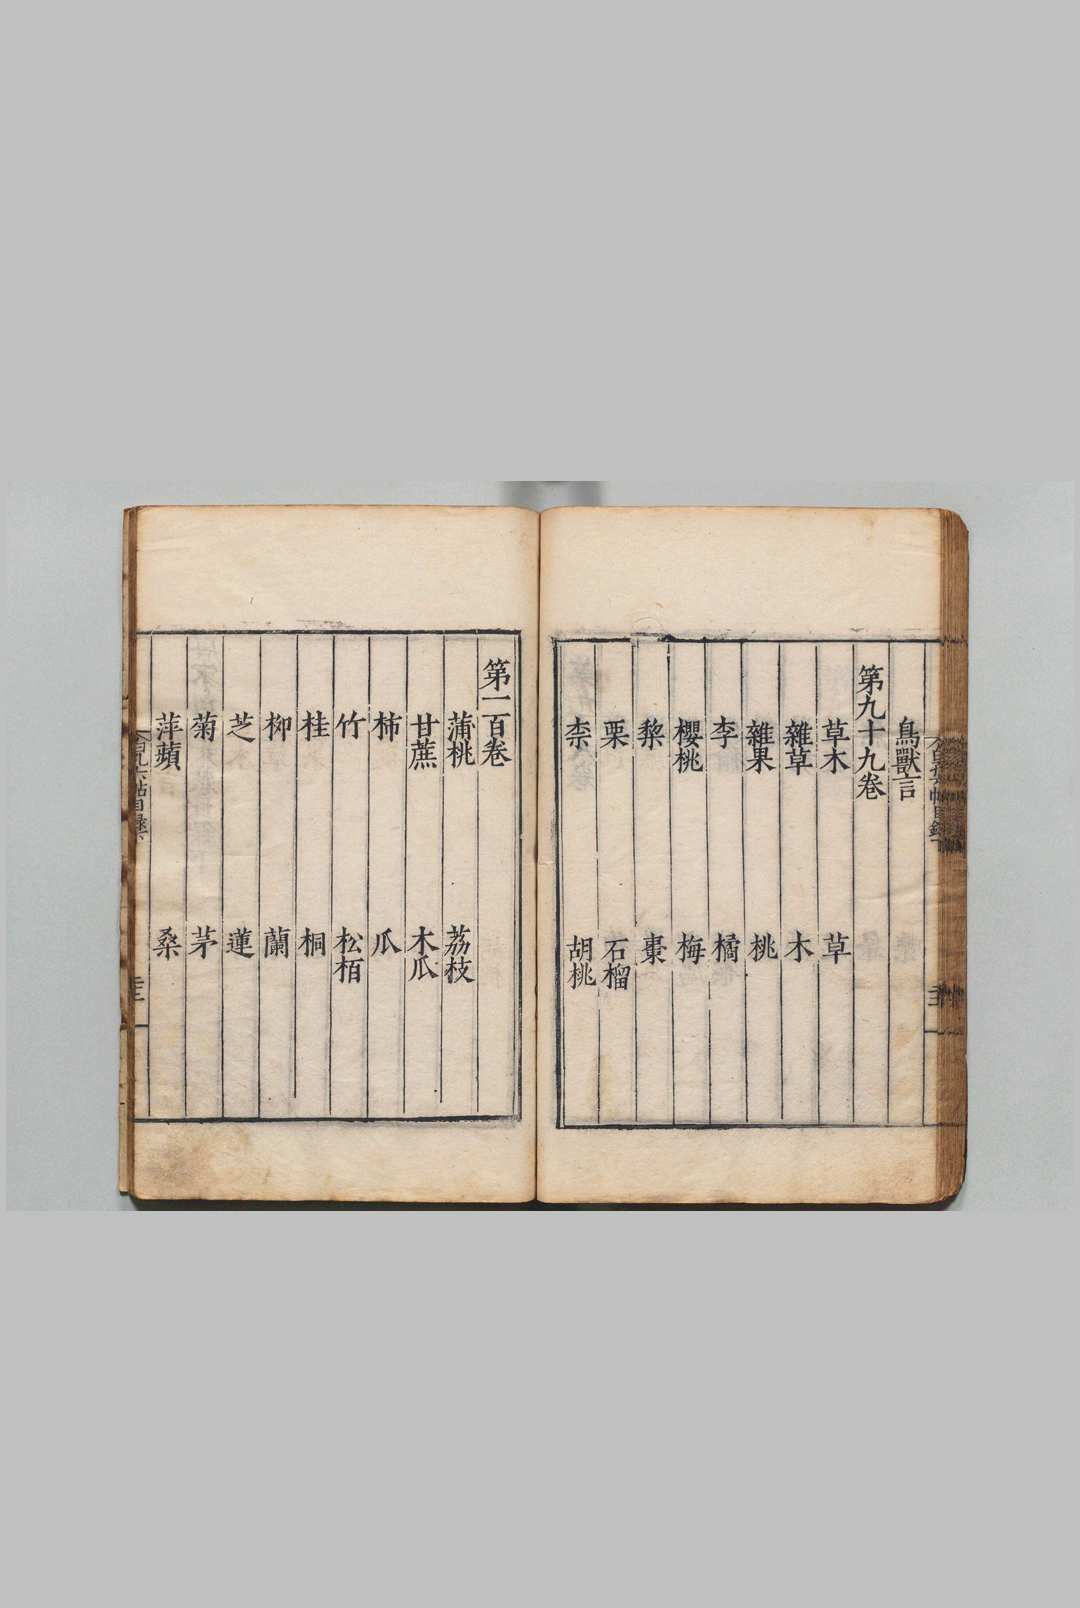 鳥獸言
第九十九卷
草木 草
雜草 木
雜果 桃
李 橘
櫻桃 梅
黎 棗
栗 石榴
柰 胡桃
第一百卷
蒲桃 荔枝
甘蔗 木瓜
柿 瓜
竹 松栢
桂 桐
柳 蘭
芝 蓮
菊 茅
萍蘋 桑